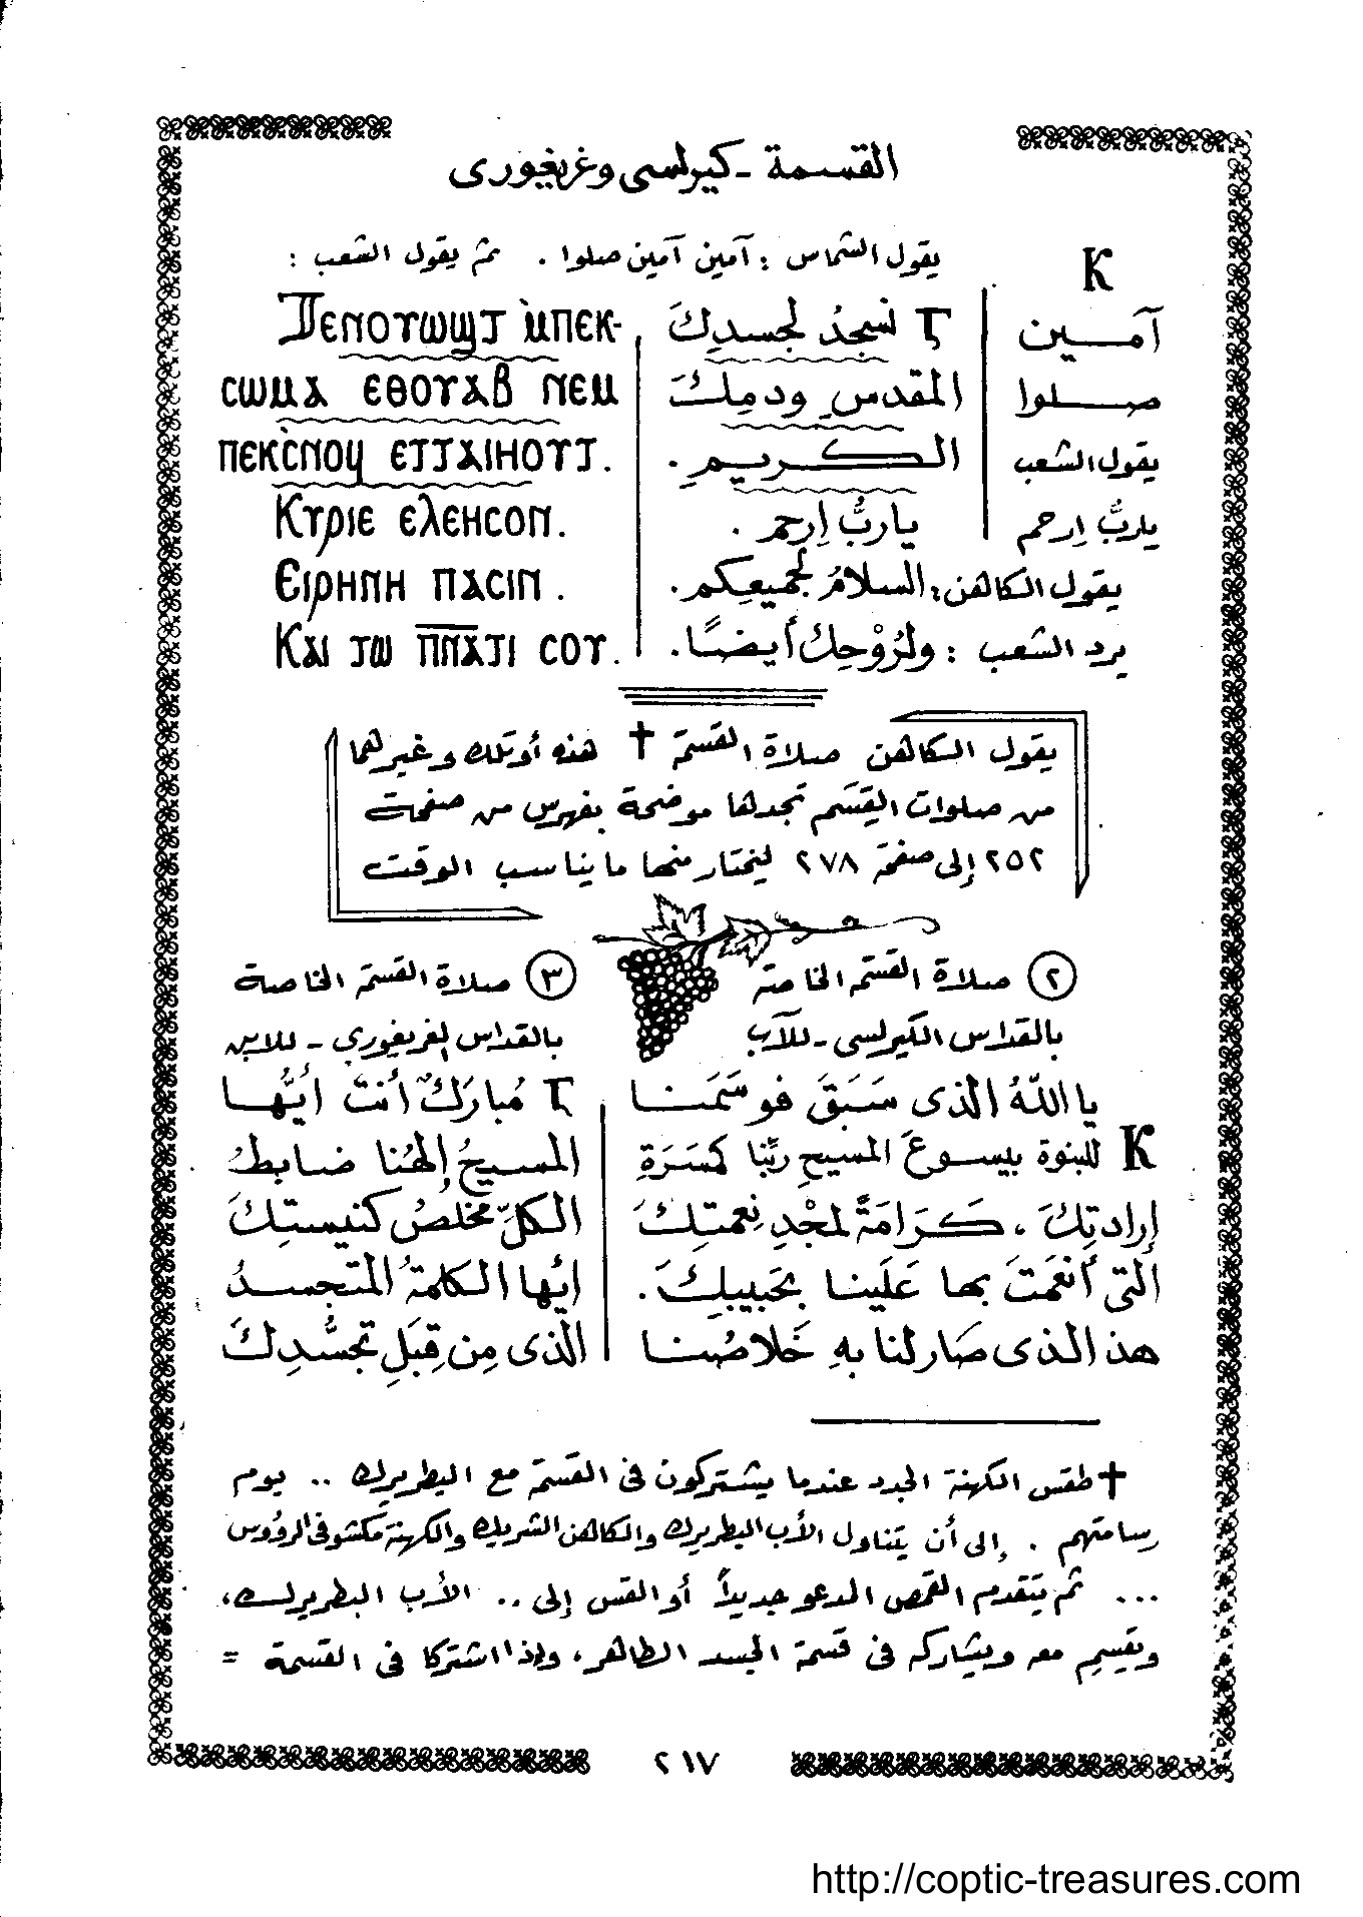 القسمة - كيرلسى وغريغورى
يقول الشماس : آمين آمين صلوا . ثم يقول الشعب :
K
آمــين
صــلوا
يقول الشعب
يارب ارحم
نسجدُ لجسدِكَ
المقدس ودمِكَ
الكريمِ .
ياربُّ اِرحم .
يقول الكاهن : السلامُ لجميعِكم .
يرد الشعب : ولرُوْحِكَ أيضًا .
Ⲧⲉⲛⲟⲩⲱϣⲧ ⲙ̀ⲡⲉⲕ-
ⲥⲱⲙⲁ ⲉⲑⲟⲩⲁⲃ ⲛⲉⲙ
ⲡⲉⲕⲥ̀ⲛⲟϥ ⲉⲧⲧⲁⲓⲏⲟⲩⲧ.
Ⲕⲩⲣⲓⲉ ⲉⲗⲉⲏⲥⲟⲛ.
Ⲉⲓⲣⲏⲛⲏ ⲡⲁⲥⲓⲛ .
Ⲕⲁⲓ ⲧⲱ ⲡⲛⲁⲧⲓ ⲥⲟⲩ.
يقول الكاهن صلاة القسمة ✝ هذه أو تلك وغيرها
من صلوات القِسَم تجدها موضحة بفهرس من صفحة
٢٥٢ إلى صفحة ٢٧٨ ليختار منها ما يناسب الوقت
② صلاة القسمة الخاصة
بالقداس الكيرلسى - للآب
يا اللهُ الذى سَبَقَ فوسَمَنا
K للبنوة بيسوعَ المسيحِ ربِّنا كمسَرَةِ
إرادتِكَ ، كَرَامَةً لمجْدِ نِعمتِكَ
التى أنعَمَتَ بها عَلَينا بحَبيبِكَ .
هذ الذى صَار لنا بهِ خَلاصُنا
③ صلاة القسمة الخاصة
بالقداس الغريغورى - للابن
مُبارَكٌ أنتَ أيُّها
المسيحُ إلهُنا ضابطُ
الكلِّ مخلصُ كنيستِكَ
ايُها الكلمةُ المتجسدُ
الذى مِن قِبَلِ تجسُّدِكَ
✝ طقس الكهنة الجدد عندما يشتركون فى القسمة مع البطريرك .. يوم
رسامتهم . إلى أن يتناول الأب البطريرك والكاهن الشريك والكهنة مكشوفى الرؤوس
... ثم يتقدم القمص المدعو جديداً أو القس إلى .. الأب البطريرك ،
ويقسم معه ويشاركه فى قسمة الجسد الطاهر ، وإذا اشتركا فى القسمة =
٢١٧
http://coptic-treasures.com